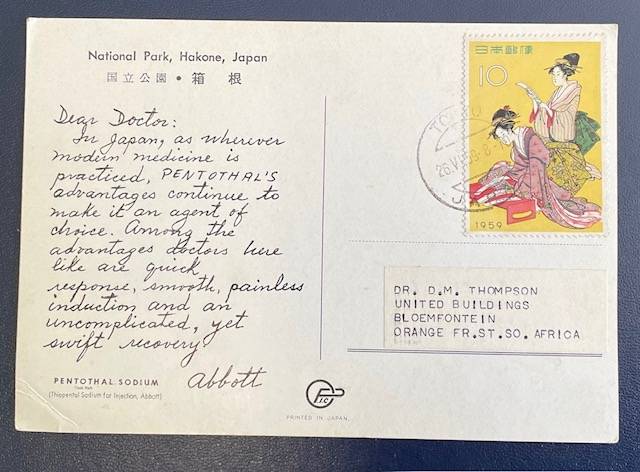 National Park, Hakone, Japan
国立公園 • 箱根
Dear Doctor:
In Japan, as wherever
modern medicine is
practiced, PENTOTHAL'S
advantages continue to
make it an agent of
choice. Among the
advantages doctors here
like are quick
response, smooth, painless
induction and an
uncomplicated, yet
swift recovery
Abbott
PENTOTHAL SODIUM
Trade Mark
(Thiopental Sodium for Injection, Abbott)
PRINTED IN JAPAN.
日本郵便
10
1959
TOKYO
DR. D.M. THOMPSON
UNITED BUILDINGS
BLOEMFONTEIN
ORANGE FR.ST.SO.AFRICA